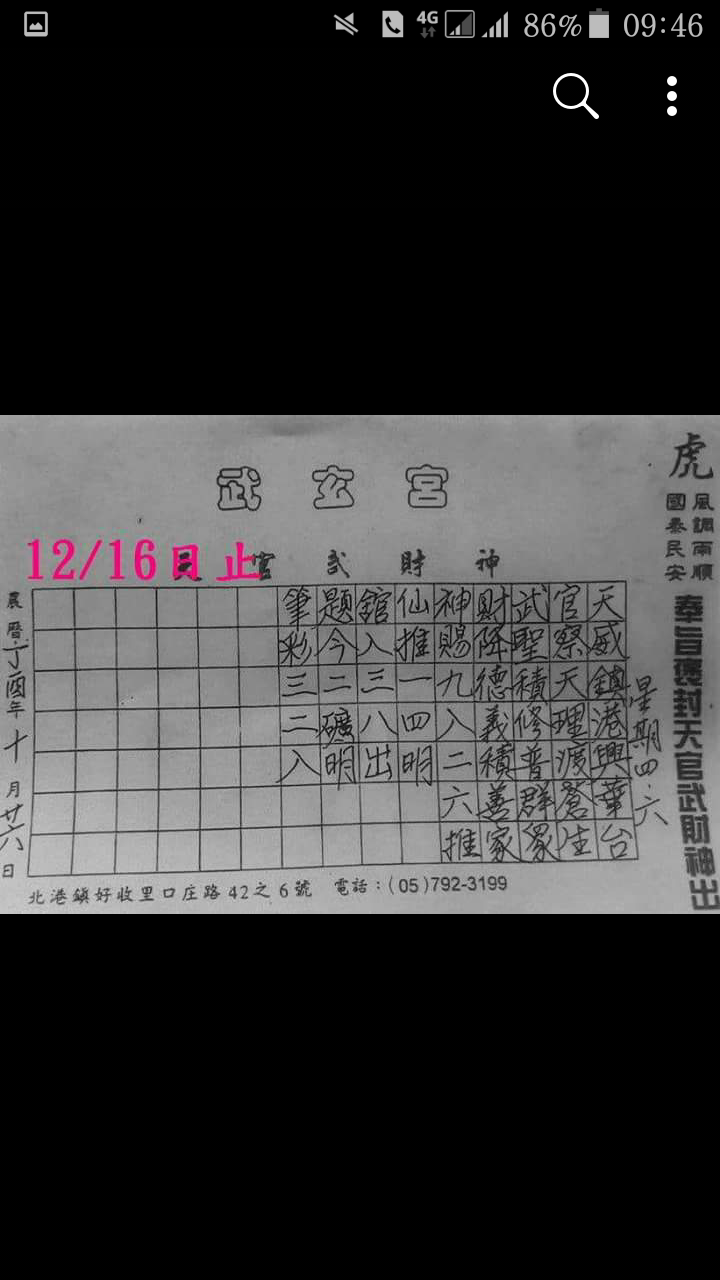 86% 09:46
4G
武玄宮
天官武財神
12/16日止
虎
風調雨順
國泰民安
奉旨褒封天官武財神出
星期四.六
天威鎮港興華台
官察天理渡蒼生
武聖積修普群眾
財降德義積善家
神賜九入二六推
仙推一四明
館入三八出
題今二礦明
筆彩三二入
農曆丁酉年十月廿六日
北港鎮好收里口庄路42之6號 電話：(05)792-3199